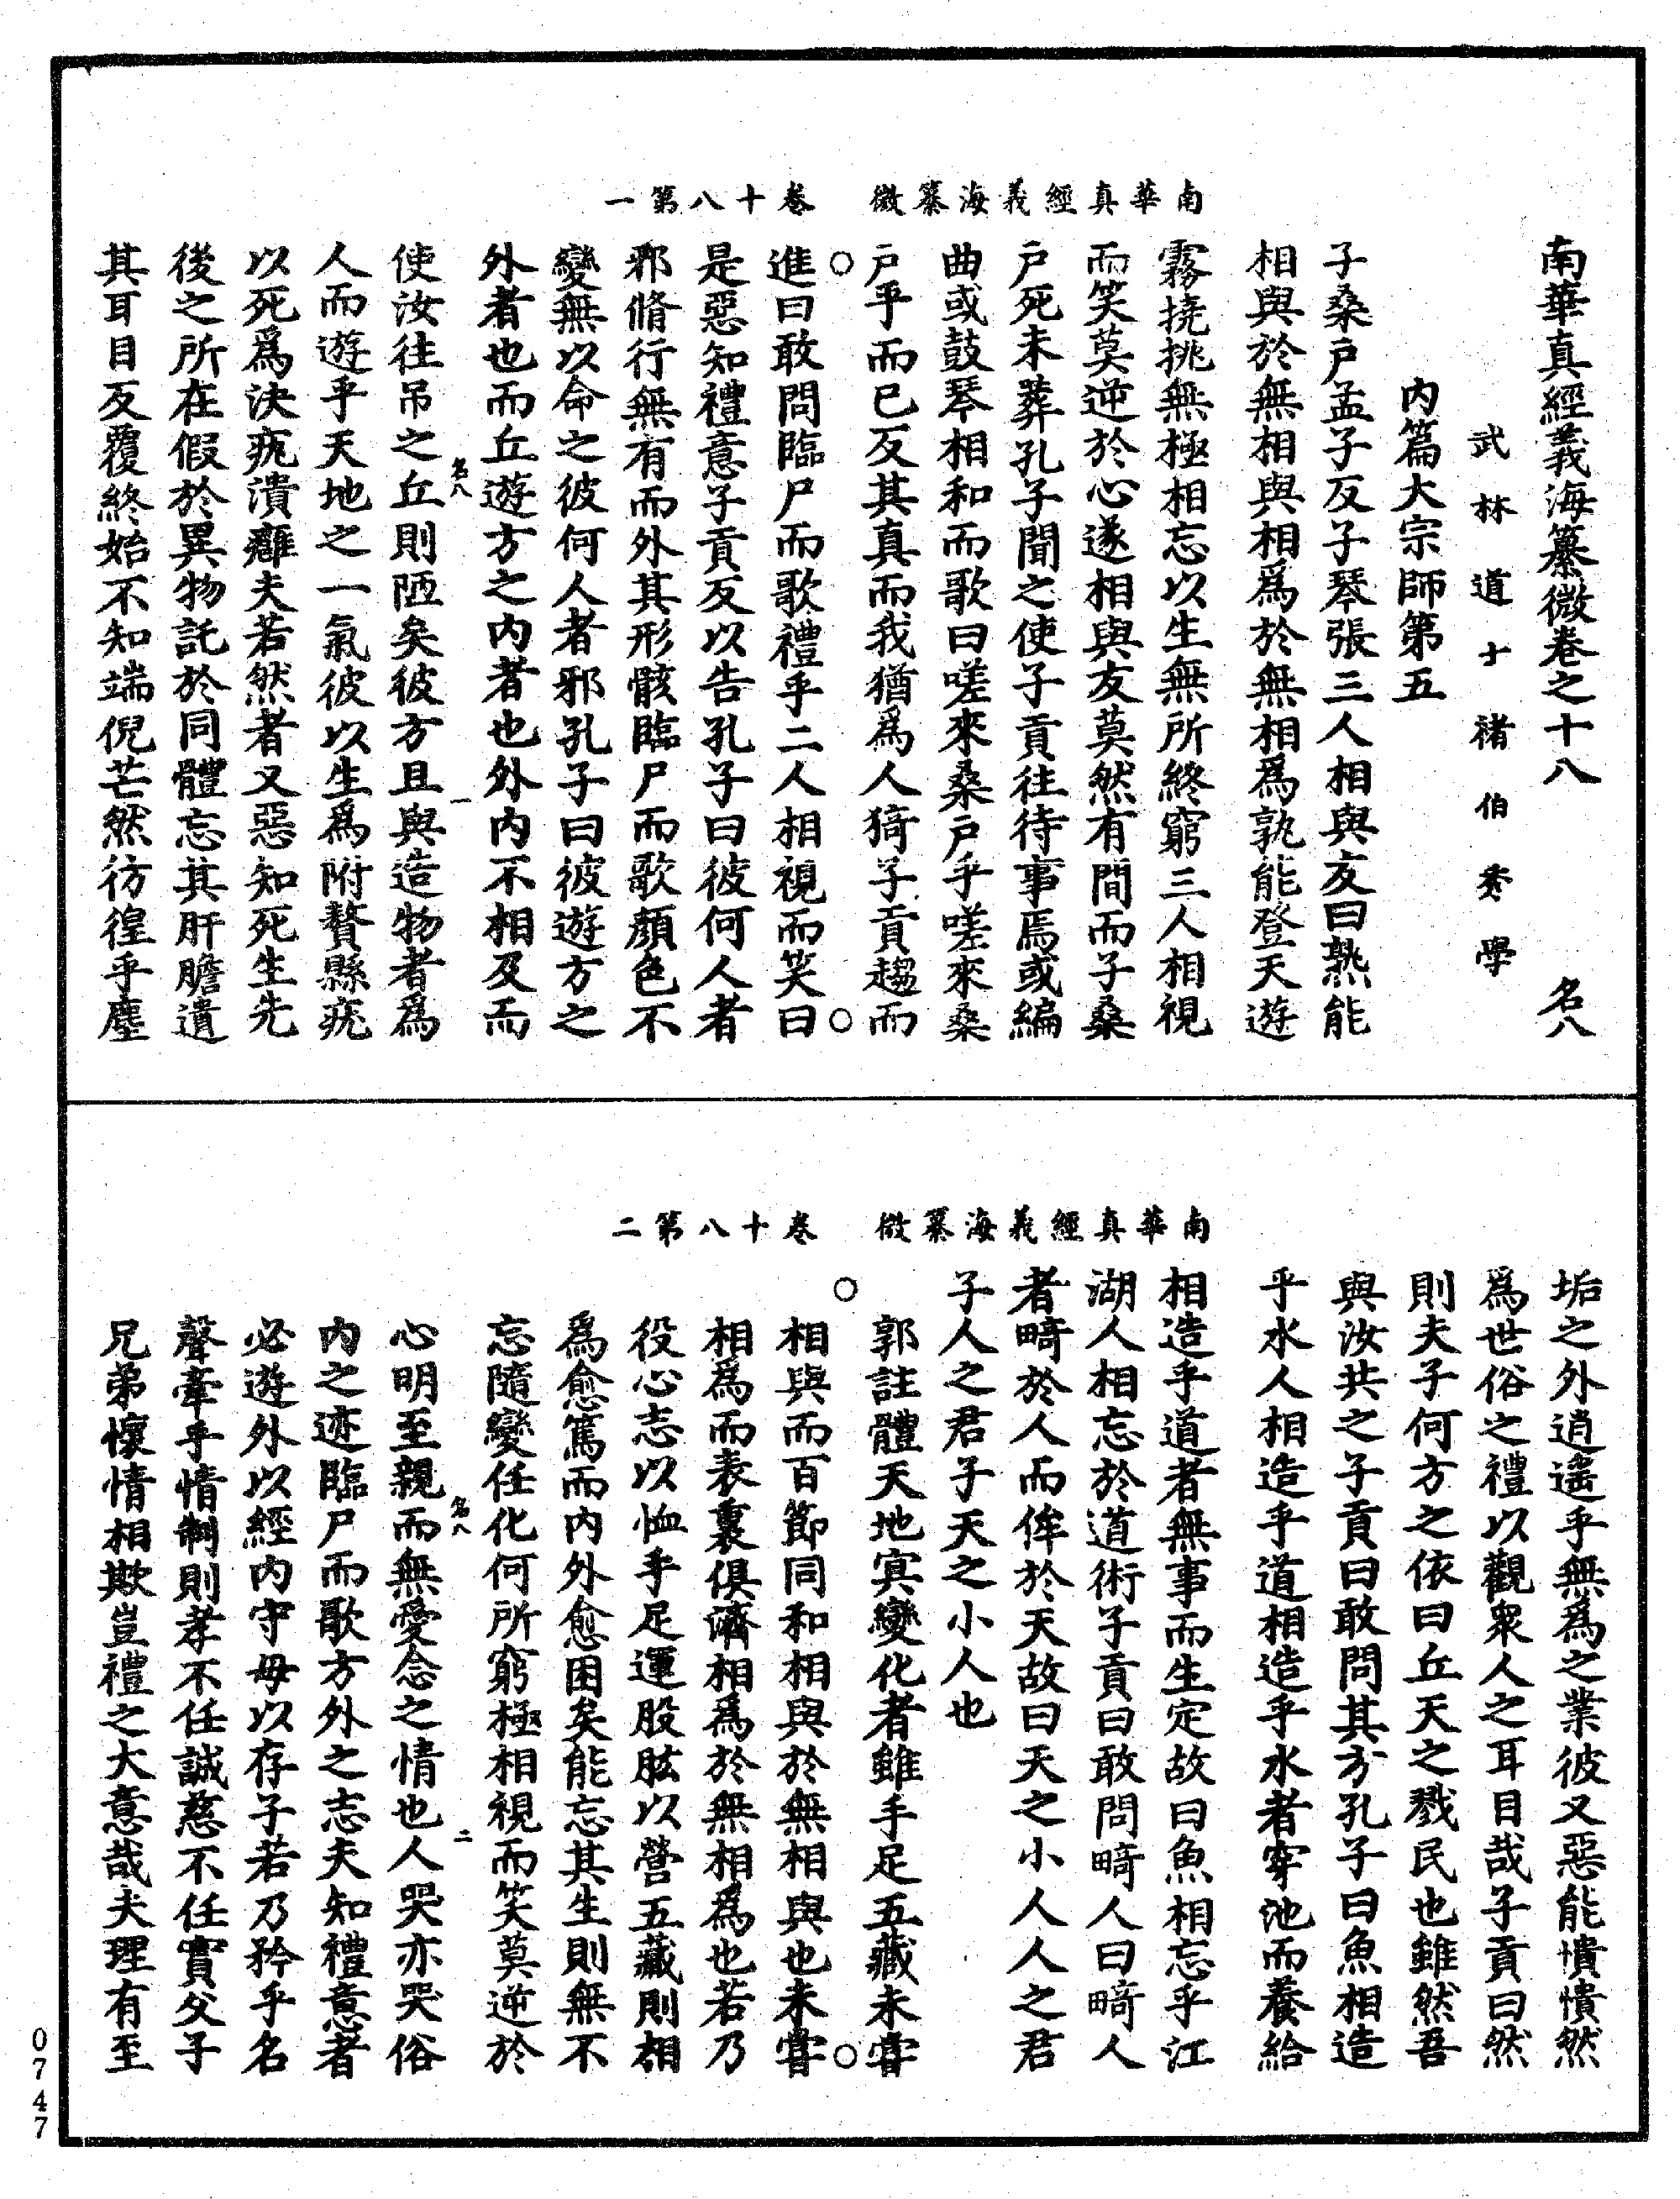 南華真經義海纂微　卷十八第一
南華真經義海纂微卷之十八　名八
武林道士褚伯秀學
內篇大宗師第五
子桑戶孟子反子琴張三人相與友曰孰能
相與於無相與相爲於無相爲孰能登天遊
霧撓挑無極相忘以生無所終窮三人相視
而笑莫逆於心遂相與友莫然有間而子桑
戶死未葬孔子聞之使子貢往待事焉或編
曲或鼓琴相和而歌曰嗟來桑戶乎嗟來桑
戶乎而已反其真而我猶爲人猗子貢趨而
進曰敢問臨尸而歌禮乎二人相視而笑曰
是惡知禮意子貢反以告孔子曰彼何人者
邪脩行無有而外其形骸臨尸而歌顏色不
變無以命之彼何人者邪孔子曰彼遊方之
外者也而丘遊方之內者也外內不相及而
名八　一
使汝往吊之丘則陋矣彼方且與造物者爲
人而遊乎天地之一氣彼以生爲附贅縣疣
以死爲決疣潰癰夫若然者又惡知死生先
後之所在假於異物託於同體忘其肝膽遺
其耳目反覆終始不知端倪芒然彷徨乎塵
南華真經義海纂微　卷十八第二
垢之外逍遙乎無爲之業彼又惡能憒憒然
爲世俗之禮以觀衆人之耳目哉子貢曰然
則夫子何方之依曰丘天之戮民也雖然吾
與汝共之子貢曰敢問其方孔子曰魚相造
乎水人相造乎道相造乎水者穿池而養給
相造乎道者無事而生定故曰魚相忘乎江
湖人相忘於道術子貢曰敢問畸人曰畸人
者畸於人而侔於天故曰天之小人人之君
子人之君子天之小人也
郭註體天地冥變化者雖手足五藏未嘗
相與而百節同和相與於無相與也未嘗
相爲而表裏俱濟相爲於無相爲也若乃
役心志以恤手足運股肱以營五藏則相
爲愈篤而內外愈困矣能忘其生則無不
忘隨變任化何所窮極相視而笑莫逆於
名八　二
心明至親而無愛念之情也人哭亦哭俗
內之迹臨尸而歌方外之志夫知禮意者
必遊外以經內守母以存子若乃矜乎名
聲牽乎情制則孝不任誠慈不任實父子
兄弟懷情相欺豈禮之大意哉夫理有至
0747